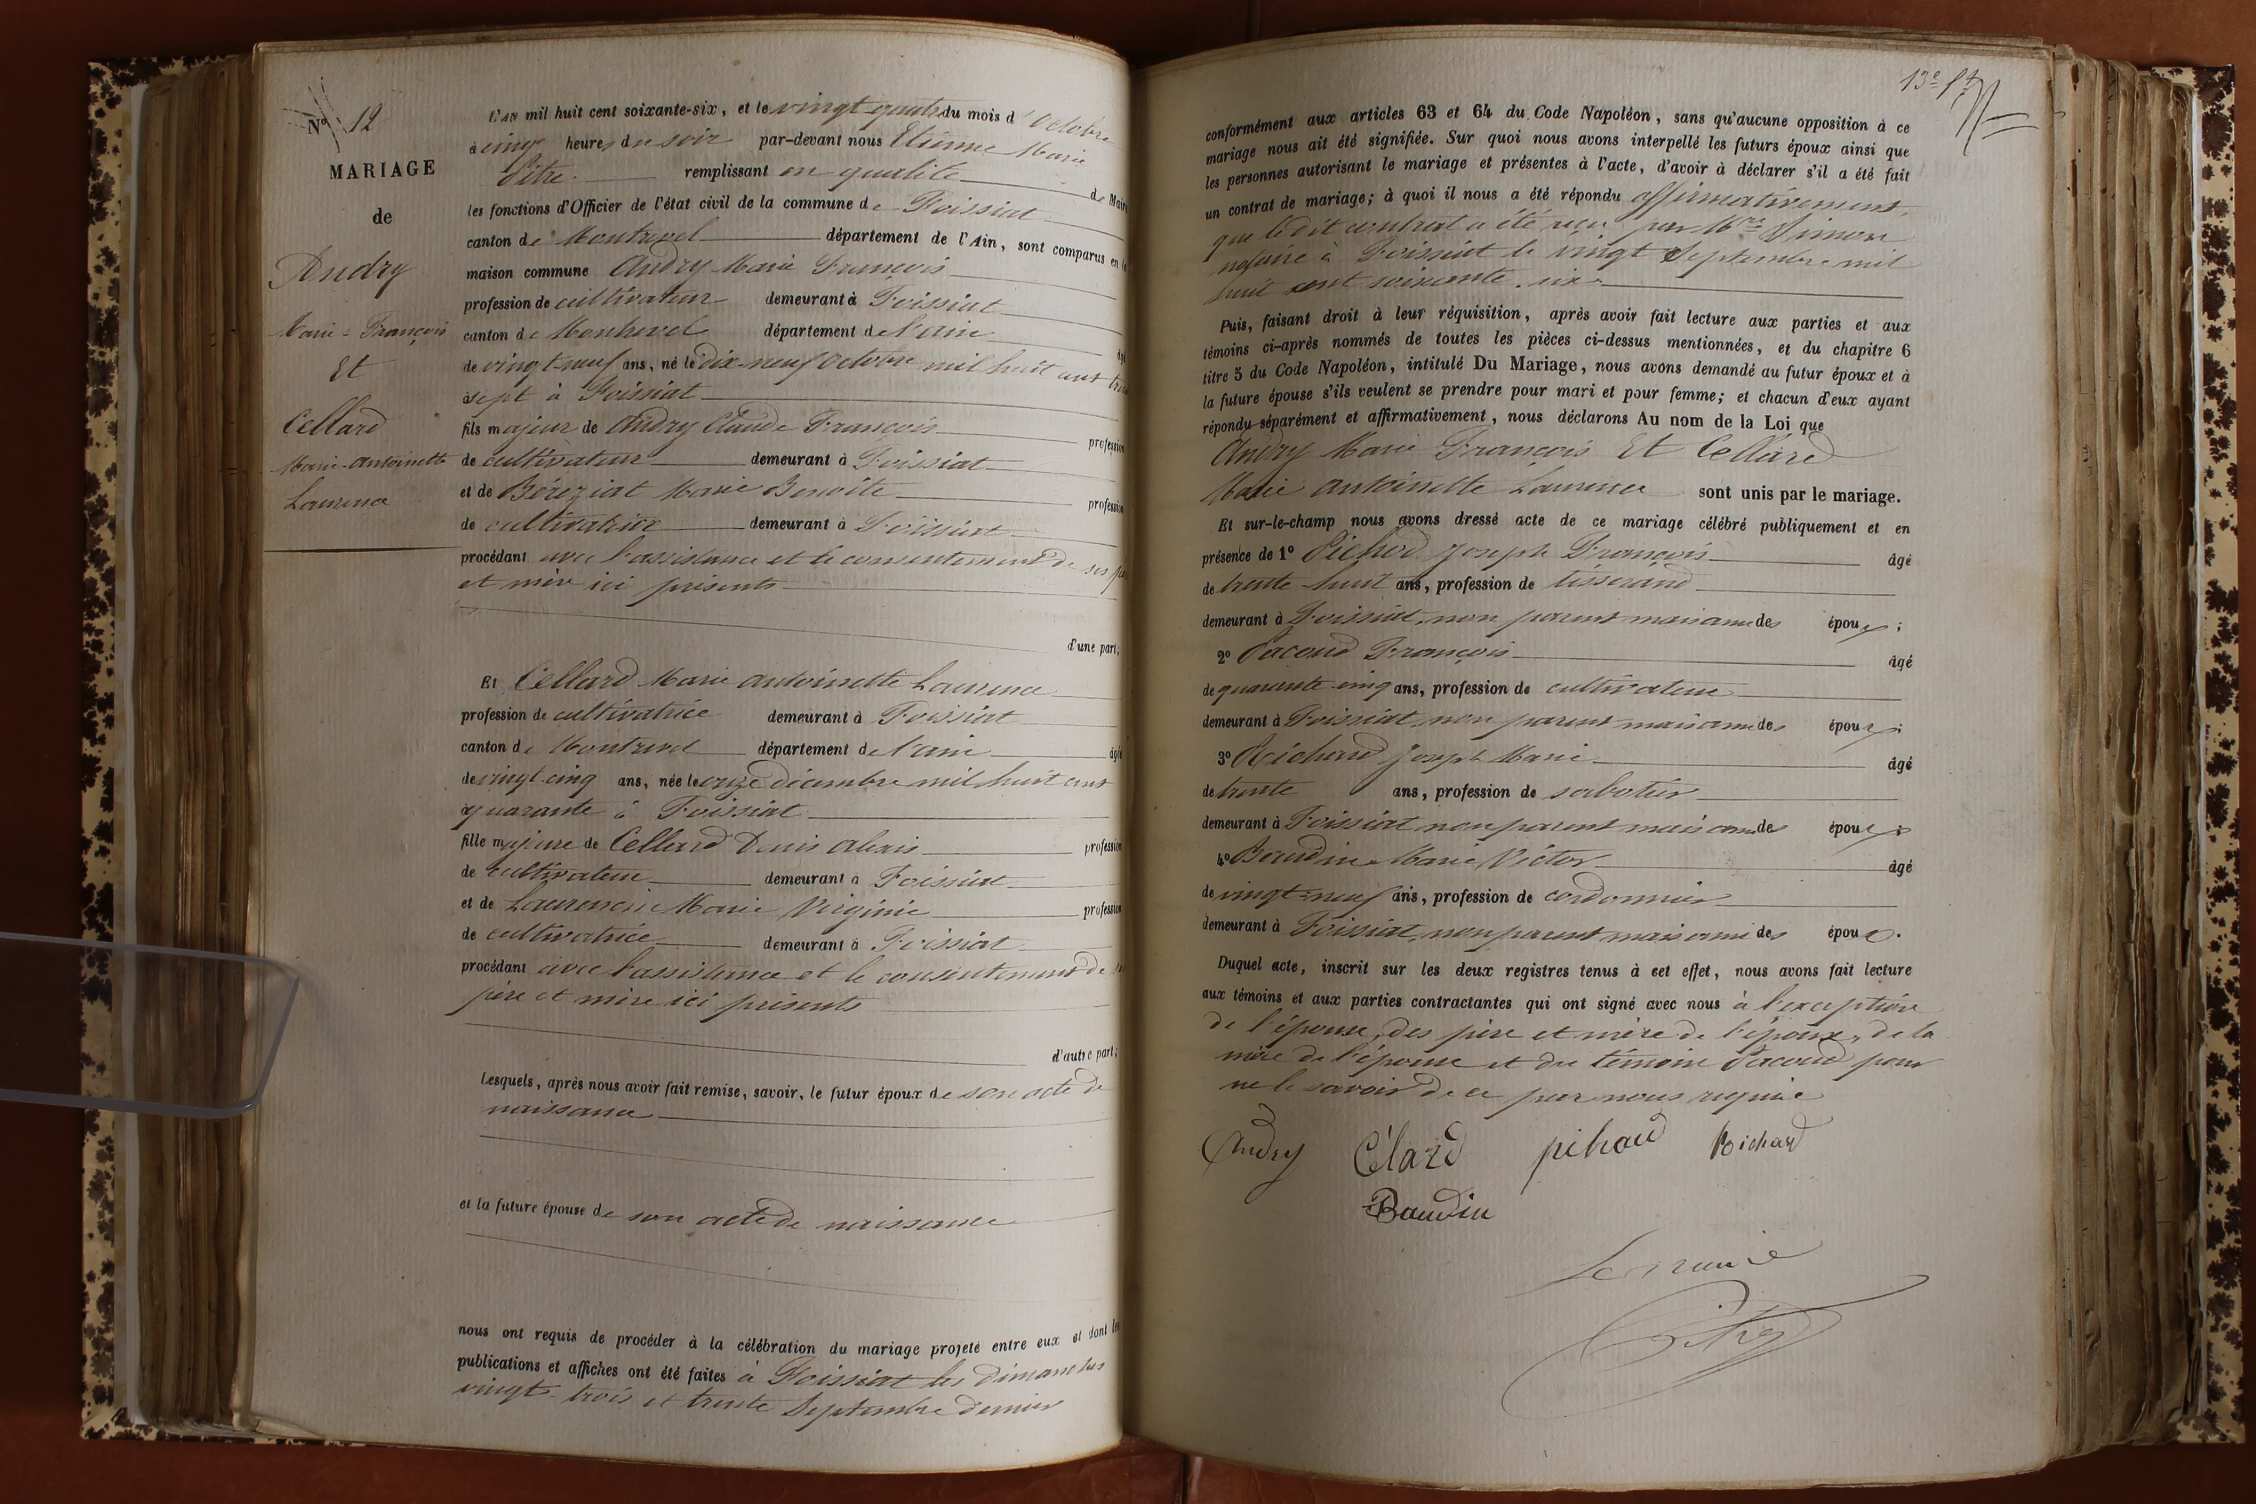 N° 12
MARIAGE
de
Andry
Marie-François
Et
Cellard
Marie-Antoinette
Laurence
L'an mil huit cent soixante-six, et le vingt quatre du mois d'Octobre
à cinq heures du soir par-devant nous Etienne Marie
Pitre remplissant en qualité de Maire
les fonctions d'Officier de l'état civil de la commune de Foissiat
canton de Montrevel département de l'Ain, sont comparus en la
maison commune Andry Marie François
profession de cultivateur demeurant à Foissiat
canton de Montrevel département de l'ain âgé
de vingt-neuf ans, né le dix-neuf Octobre mil huit cent trente
sept à Foissiat
fils majeur de Andry Claude François profession
de cultivateur demeurant à Foissiat
et de Béréziat Marie Benoite profession
de cultivatrice demeurant à Foissiat
procédant avec l'assistance et le consentement de ses père
et mère ici présents
d'une part;
Et Cellard Marie antoinette Laurence
profession de cultivatrice demeurant à Foissiat
canton de Montrevel département de l'ain âgé
de vingt cinq ans, née le onze décembre mil huit cent
quarante à Foissiat
fille majeure de Cellard Denis alexis profession
de cultivateur demeurant à Foissiat
et de Laurencin Marie Virginie profession
de cultivatrice demeurant à Foissiat
procédant avec l'assistance et le consentement de ses
père et mère ici présents
d'autre part;
Lesquels, après nous avoir fait remise, savoir, le futur époux de son acte de
naissance
et la future épouse de son acte de naissance
nous ont requis de procéder à la célébration du mariage projeté entre eux et dont les
publications et affiches ont été faites à Foissiat les dimanches
vingt-trois et trente Septembre dernier
13e ft
conformément aux articles 63 et 64 du Code Napoléon, sans qu'aucune opposition à ce
mariage nous ait été signifiée. Sur quoi nous avons interpellé les futurs époux ainsi que
les personnes autorisant le mariage et présentes à l'acte, d'avoir à déclarer s'il a été fait
un contrat de mariage; à quoi il nous a été répondu affirmativement,
que ledit contrat a été reçu par Me Simon
notaire à Foissiat le vingt Septembre mil
huit cent soixante-six
Puis, faisant droit à leur réquisition, après avoir fait lecture aux parties et aux
témoins ci-après nommés de toutes les pièces ci-dessus mentionnées, et du chapitre 6
titre 5 du Code Napoléon, intitulé Du Mariage, nous avons demandé au futur époux et à
la future épouse s'ils veulent se prendre pour mari et pour femme; et chacun d'eux ayant
répondu séparément et affirmativement, nous déclarons Au nom de la Loi que
Andry Marie François Et Cellard
Marie antoinette Laurence sont unis par le mariage.
Et sur-le-champ nous avons dressé acte de ce mariage célébré publiquement et en
présence de 1° Pichod Joseph François âgé
de trente-huit ans, profession de tisserand
demeurant à Foissiat, non parent mais ami des époux;
2° Pacoud François âgé
de quarante-cinq ans, profession de cultivateur
demeurant à Foissiat, non parent mais ami des époux;
3° Richard Joseph Marie âgé
de trente ans, profession de sabotier
demeurant à Foissiat non parent mais ami des époux;
4° Baudin Marie Victor âgé
de vingt-neuf ans, profession de cordonnier
demeurant à Foissiat, non parent mais ami des époux.
Duquel acte, inscrit sur les deux registres tenus à cet effet, nous avons fait lecture
aux témoins et aux parties contractantes qui ont signé avec nous à l'exception
de l'épouse, des père et mère de l'époux, de la
mère de l'épouse et du témoin Pacoud pour
ne le savoir de ce par nous requis
Andry Célard pichod Richard
Baudin
Le maire
Pitre